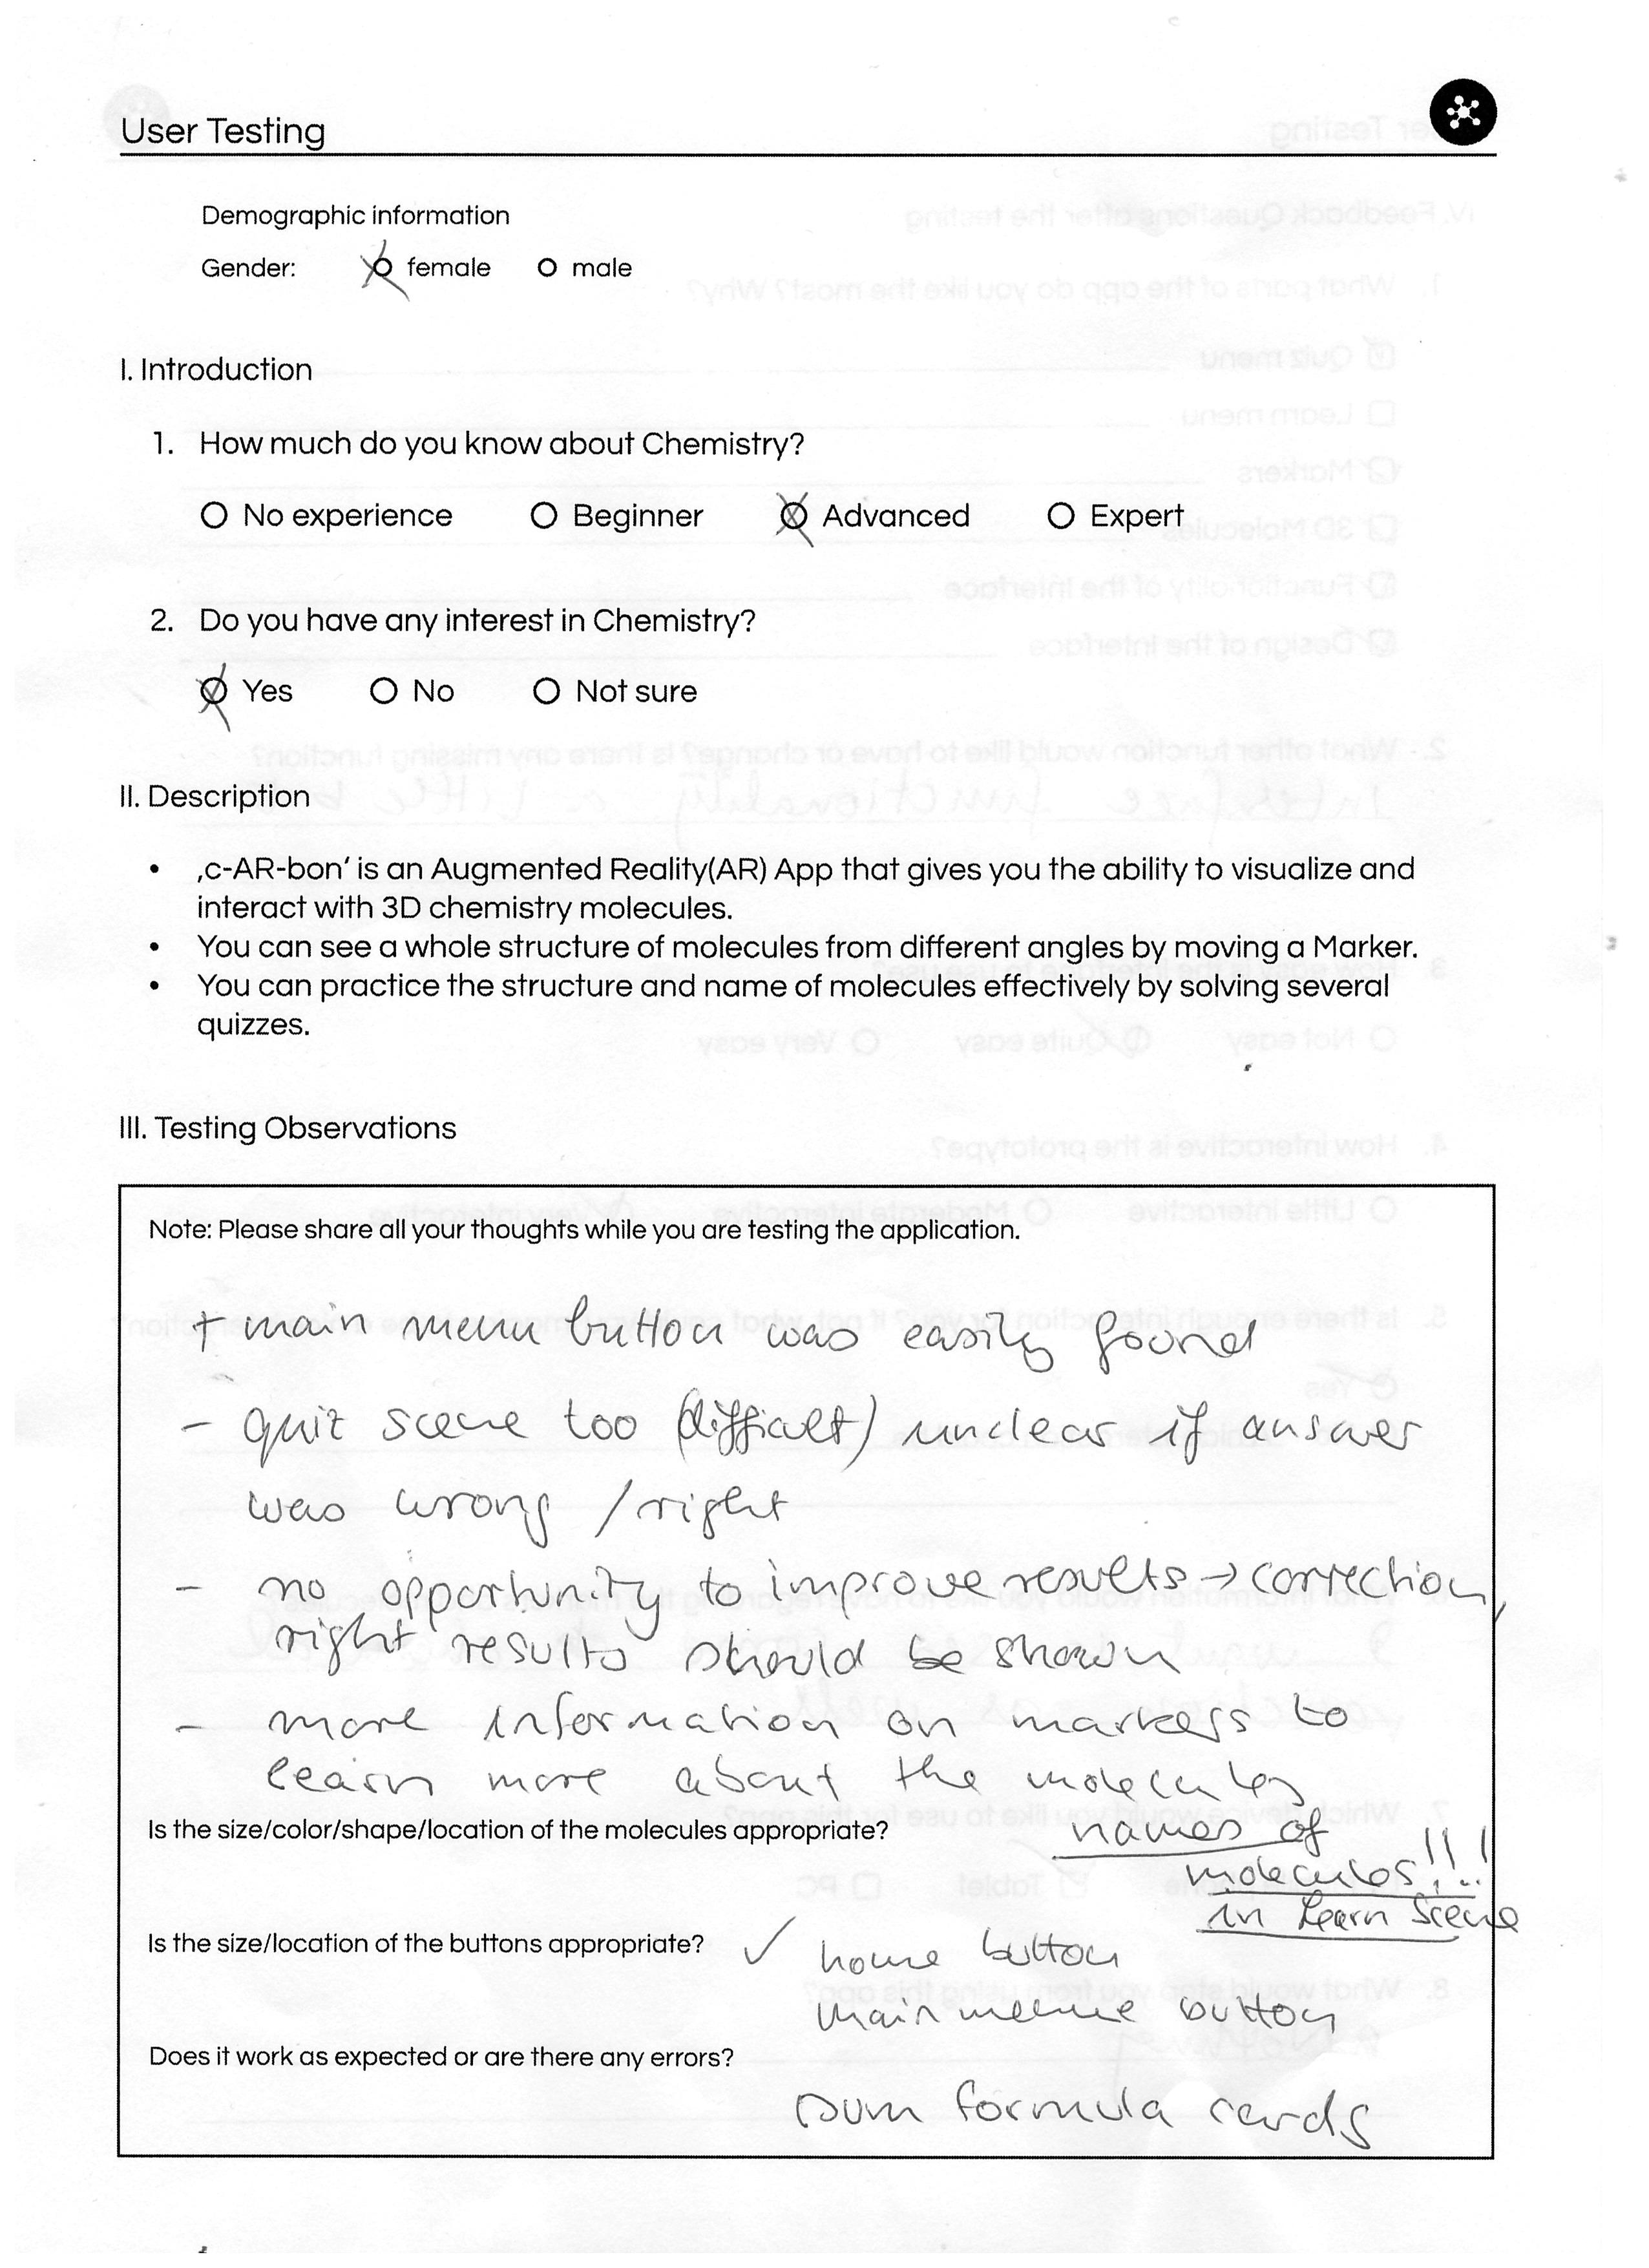 User Testing
Demographic information
Gender: female male
I. Introduction
1. How much do you know about Chemistry?
No experience Beginner Advanced Expert
2. Do you have any interest in Chemistry?
Yes No Not sure
II. Description
• ‚c-AR-bon‘ is an Augmented Reality(AR) App that gives you the ability to visualize and
interact with 3D chemistry molecules.
• You can see a whole structure of molecules from different angles by moving a Marker.
• You can practice the structure and name of molecules effectively by solving several
quizzes.
III. Testing Observations
Note: Please share all your thoughts while you are testing the application.
+ main menu button was easily found
- quiz scene too (difficult) unclear if answer
was wrong / right
- no opportunity to improve results → correction,
right results should be shown
- more information on markers to
learn more about the molecules
Is the size/color/shape/location of the molecules appropriate?
names of
molecules!!!
in Learn Scene
Is the size/location of the buttons appropriate? ✓ home button
main menue button
Does it work as expected or are there any errors?
sum formula cards